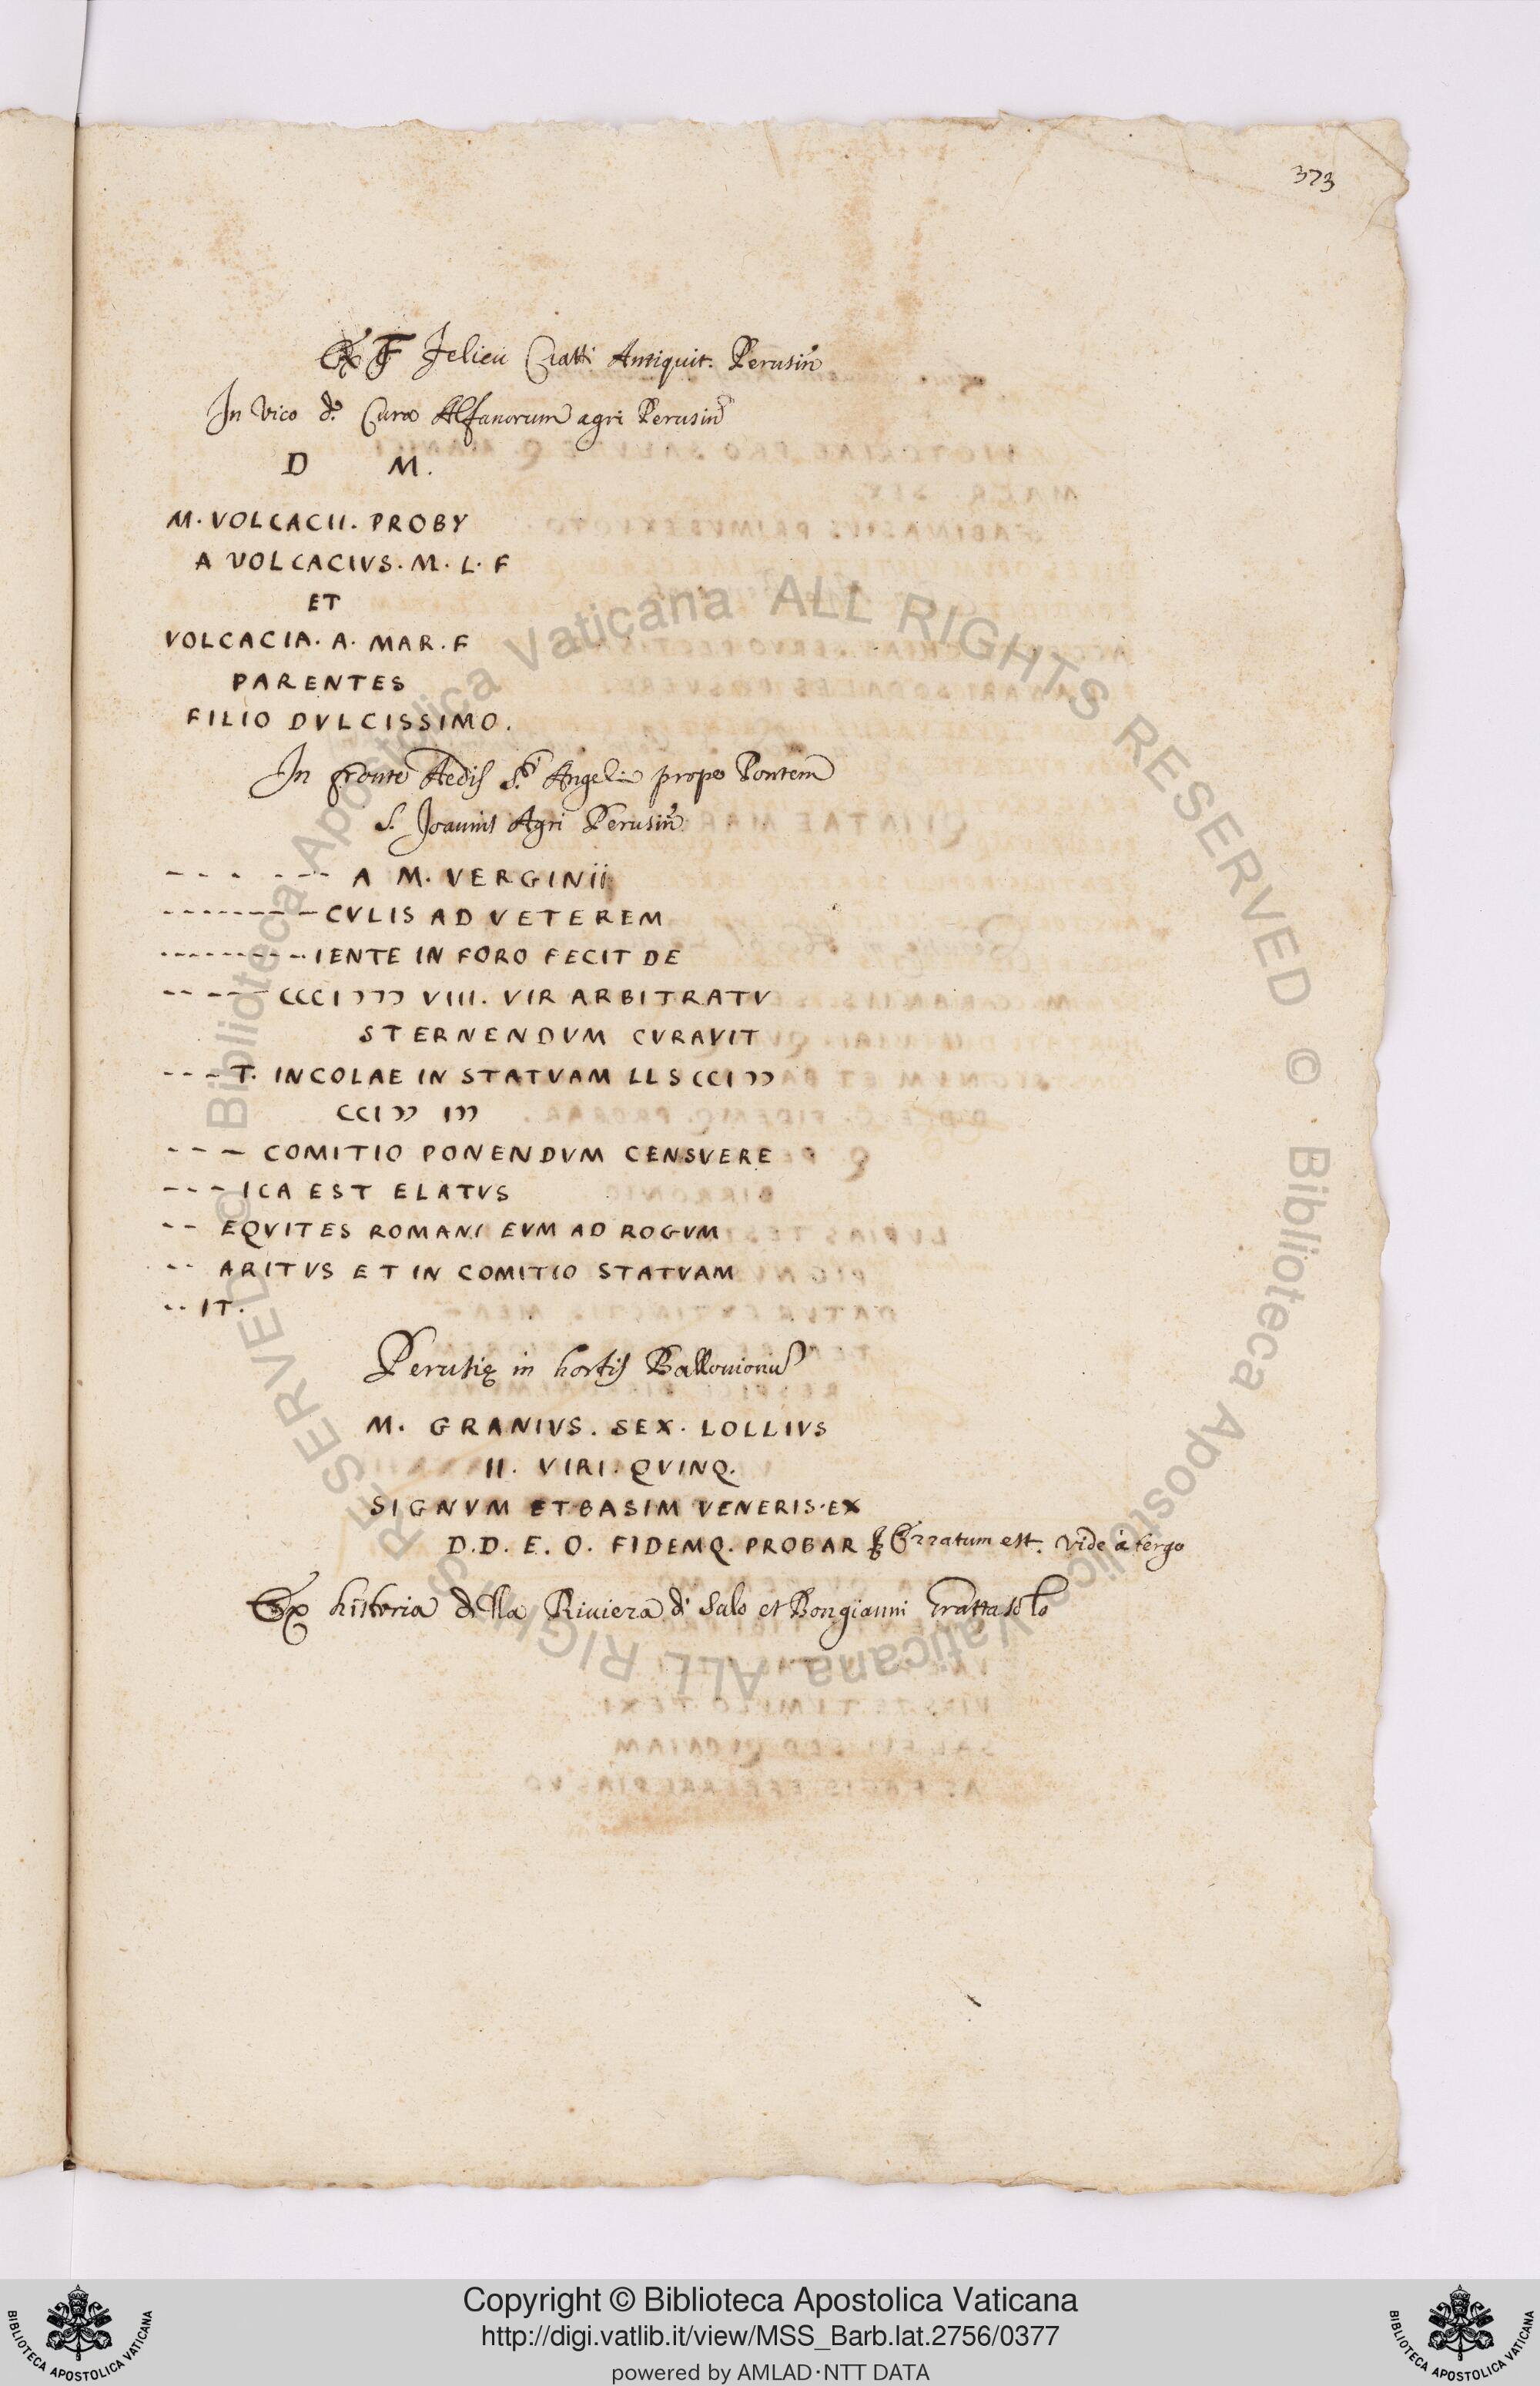 373
Ex F Felicii Ciatti Antiquit. Perusin
In Vico d. Cura Alfanorum agri Perusin
D M.
M. VOLCACII. PROBY
A VOLCACIVS. M. L. F
ET
VOLCACIA. A. MAR. F
PARENTES
FILIO DVLCISSIMO.
In fronte Aedis S.ti Angeli prope Pontem
S. Joannis Agri Perusin.
- - - - - - A M. VERGINII
- - - - - - - - CVLIS AD VETEREM
- - - - - - - - - IENTE IN FORO FECIT DE
- - - - - CCCIↃↃↃ VIII. VIR ARBITRATV
STERNENDVM CVRAVIT
- - - T. INCOLAE IN STATVAM LLS CCIↃↃ
CCIↃↃ IↃↃ
- - - COMITIO PONENDVM CENSVERE
- - - ICA EST ELATVS
- - EQVITES ROMANI EVM AD ROGVM
- - ARITVS ET IN COMITIO STATVAM
- - IT.
Perusię in hortis
M. GRANIVS. SEX. LOLLIVS
II. VIRI. QVINQ.
SIGNVM ET BASIM VENERIS. EX
D.D. E. O. FIDEMQ. PROBAR Erratum est. vide à tergo
Ex historia della Riviera di Salo et Bongianni Grattarolo
Copyright © Biblioteca Apostolica Vaticana
http://digi.vatlib.it/view/MSS_Barb.lat.2756/0377
powered by AMLAD·NTT DATA
BIBLIOTECA APOSTOLICA VATICANA
BIBLIOTECA APOSTOLICA VATICANA
© Biblioteca Apostolica Vaticana ALL RIGHTS RESERVED
© Biblioteca Apostolica Vaticana ALL RIGHTS RESERVED